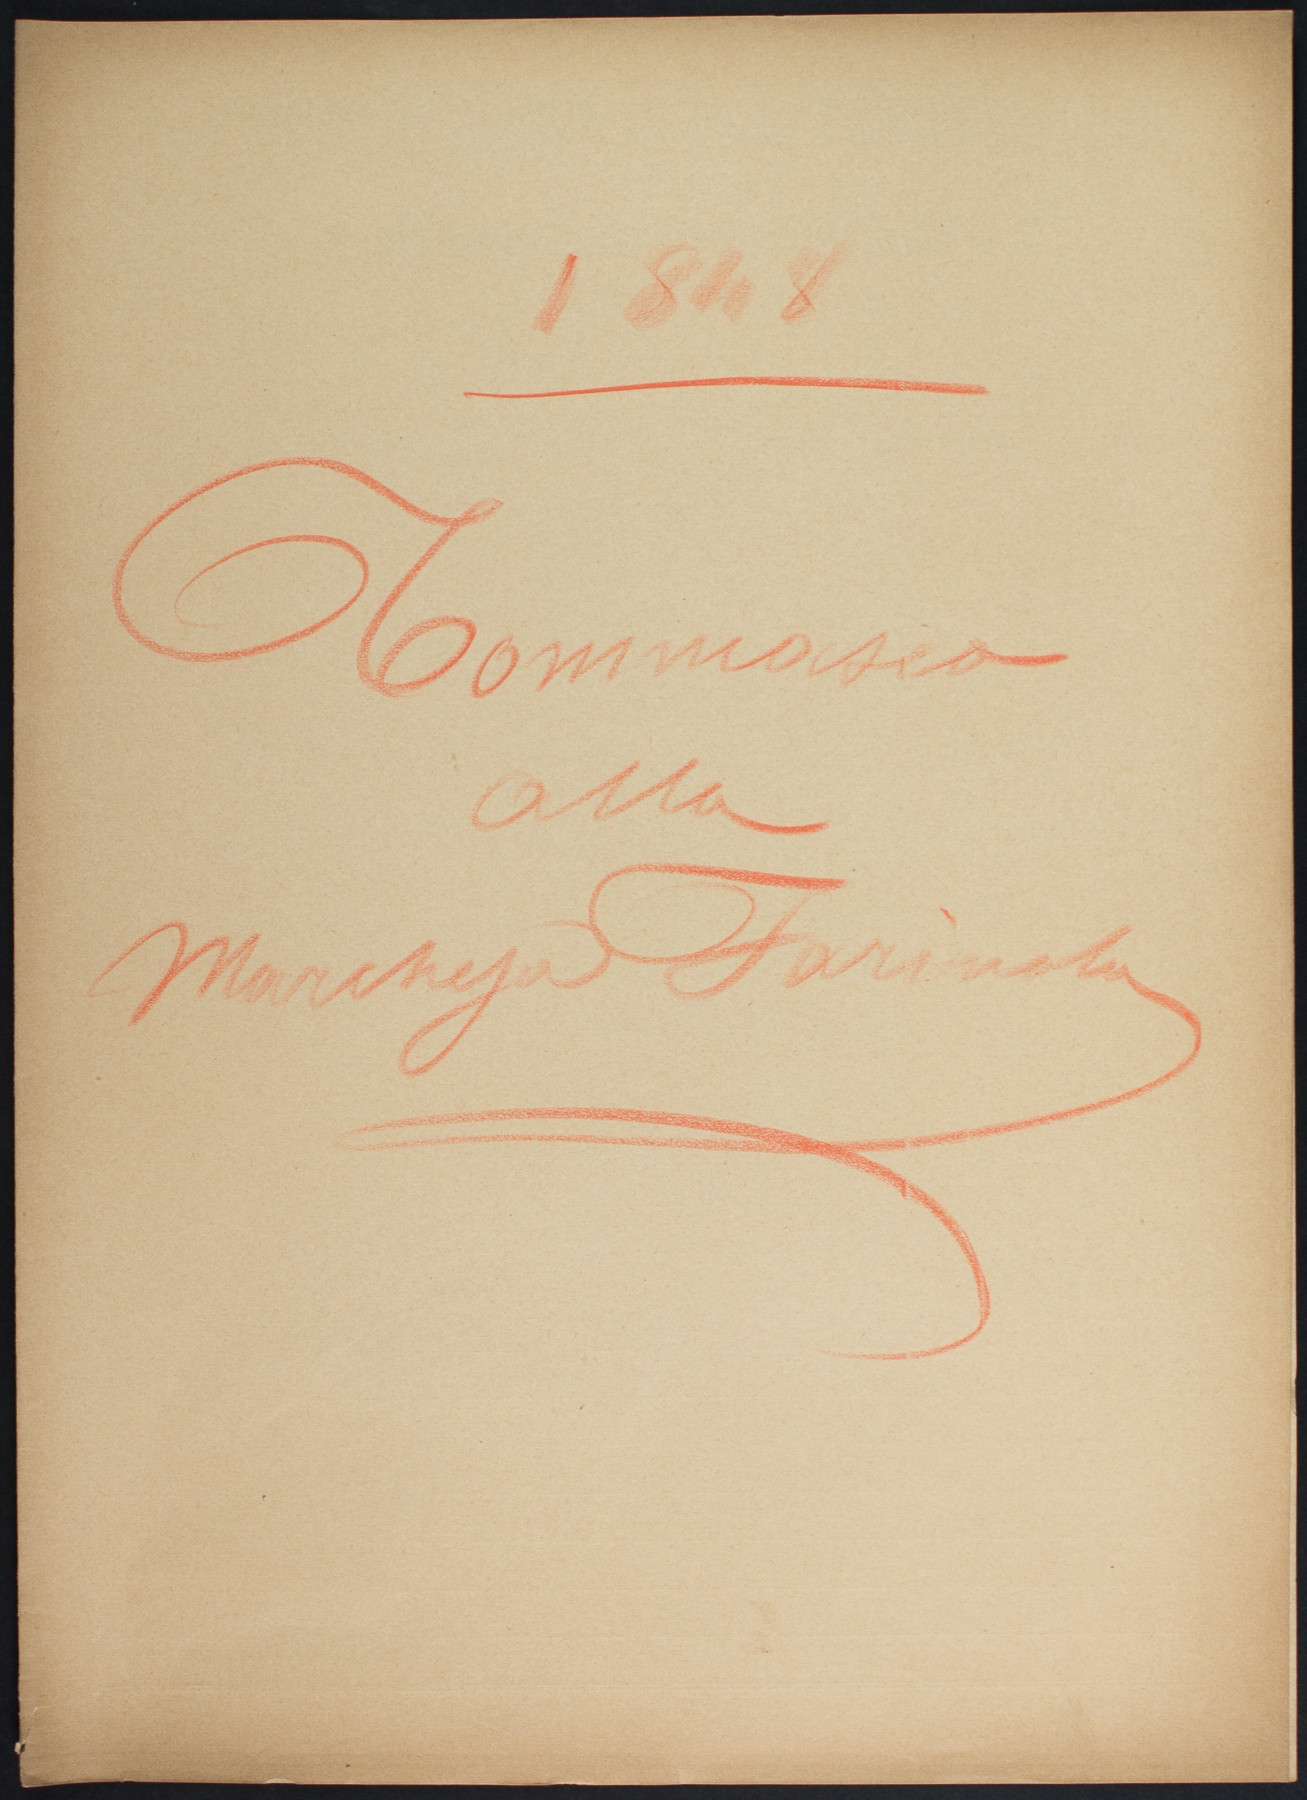 1848
Tommaseo
alla
Marchesa Farinola